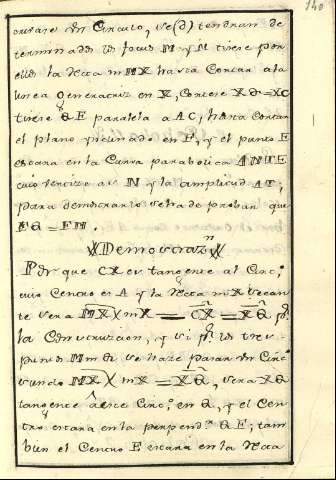 140
curare Un Circulo, se(d) tendran de
terminados los focus M y N tirese por
ellos la Recta mMX hasta Cortar ala
linea generatriz en X, Cortese XQ=XC
tirese QE paralela a AC, hasta Cortar
el plano ynclinado en E, y el punto E
estara en la Curva parabolica ANTE
cuio vertize es N y la amplitud AT,
para demostrarlo se ha de probar que
EQ=EM.
Demostrazn
Por que CX es tangente al Circ.º
cuio Centro es A y la Recta mX secan
te sera MX × mX = CX² = XQ², pr.
la Construzion, y si pr. los tres
puntos M m Q se haze pasar Un Circº
siendo MX × mX = XQ², sera XQ
tangente a este Circ.º en Q, y el Cen
tro estara en la perpendr. QE; tam
bien el Centro Estara en la Recta